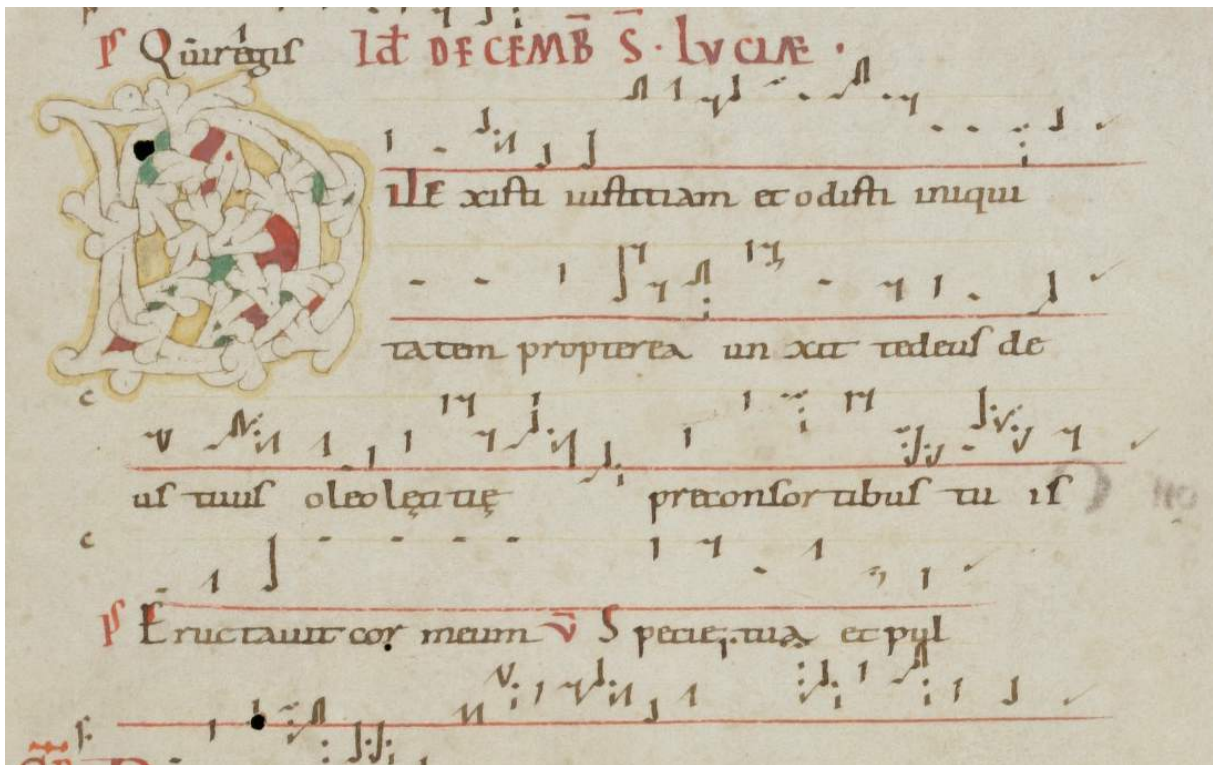 ps Qui regis Id DECEMB S. LVCIAE.
DILEXisti iustitiam et odisti iniqui
tatem propterea un xit te deus de
c
us tuus oleo lęti tię pre consor tibus tu is
c
ps Eructauit cor meum v Specie tua et pul